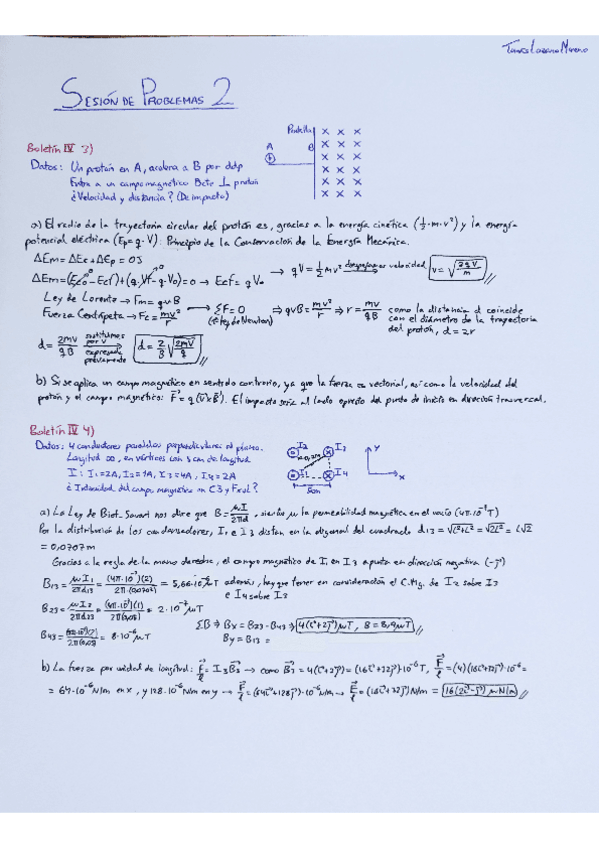 Tomás Lozano Moreno
SESIÓN DE PROBLEMAS 2
Pantalla x x x
Boletín IV 3)
A B x x x
Datos: Un protón en A, acelera a B por ddp
Entra a un campo magnético Bcte ⊥ protón
¿Velocidad y distancia? (De impacto)
a) El radio de la trayectoria circular del protón es, gracias a la energía cinética (½·m·v²) y la energía
potencial eléctrica (Ep = q·V): Principio de la Conservación de la Energía Mecánica.
ΔEm = ΔEc + ΔEp = 0J
ΔEm = (Eco - Ecf) + (q·Vf - q·Vo) = 0 → Ecf = qVo → qV = ½mv² despejamos velocidad v = √(2qV/m)
Ley de Lorentz → Fm = qvB
Fuerza Centrípeta → Fc = mv²/r → ΣF = 0 (1ª ley de Newton) ⇒ qvB = mv²/r ⇒ r = mv/qB como la distancia d coincide
con el diámetro de la trayectoria
del protón, d = 2r
d = 2mv/qB sustituimos por V expresada previamente d = 2/B √(2mV/q)
b) Si se aplica un campo magnético en sentido contrario, ya que la fuerza es vectorial, así como la velocidad del
protón y el campo magnético: F = q(v×B). El impacto sería al lado opuesto del punto de inicio en dirección transversal.
Boletín IV 4)
Datos: 4 conductores paralelos perpendiculares al plano.
Longitud ∞, en vértices con 5 cm de longitud
I: I1=2A, I2=1A, I3=4A, I4=2A
¿Intensidad del campo magnético en C3 y F×ud?
I2 I3
I4
5cm
y
x
a) La Ley de Biot-Savart nos dice que B = μI/2πd, siendo μ la permeabilidad magnética en el vacío (4π·10⁻⁷T)
Por la distribución de los condensadores, I1 e I3 distan en la diagonal del cuadrado d13 = √(L²+L²) = √2L² = L√2
= 0,0707m
Gracias a la regla de la mano derecha, el campo magnético de I1 en I3 apunta en dirección negativa (-j)
B13 = μI1/2πd13 = (4π·10⁻⁷)(2)/2π(0,0707) = 5,66·10⁻⁶ μT además, hay que tener en consideración el C.Mg. de I2 sobre I3
e I4 sobre I3
B23 = = (4π·10⁻⁷)(1) = 2·10⁻⁷ μT
B43 = = 8·10⁻⁶ μT
ΣB ⇒ Bx = B23 - B43 ⇒ 4(i+2j)μT, B = 8,9μT
By = B13 =
b) La fuerza por unidad de longitud: F/l = I3B3 → como B3 = 4(i+2j) = (16i+32j)·10⁻⁶ T, F/l = (4)(16i+32j)·10⁻⁶ =
= 64·10⁻⁶ N/m en x, y 128·10⁻⁶ N/m en y → F/l = (64i+128j)·10⁻⁶ N/m → F/l = (16i+32j)N/m = 16(2i-j) μN/m